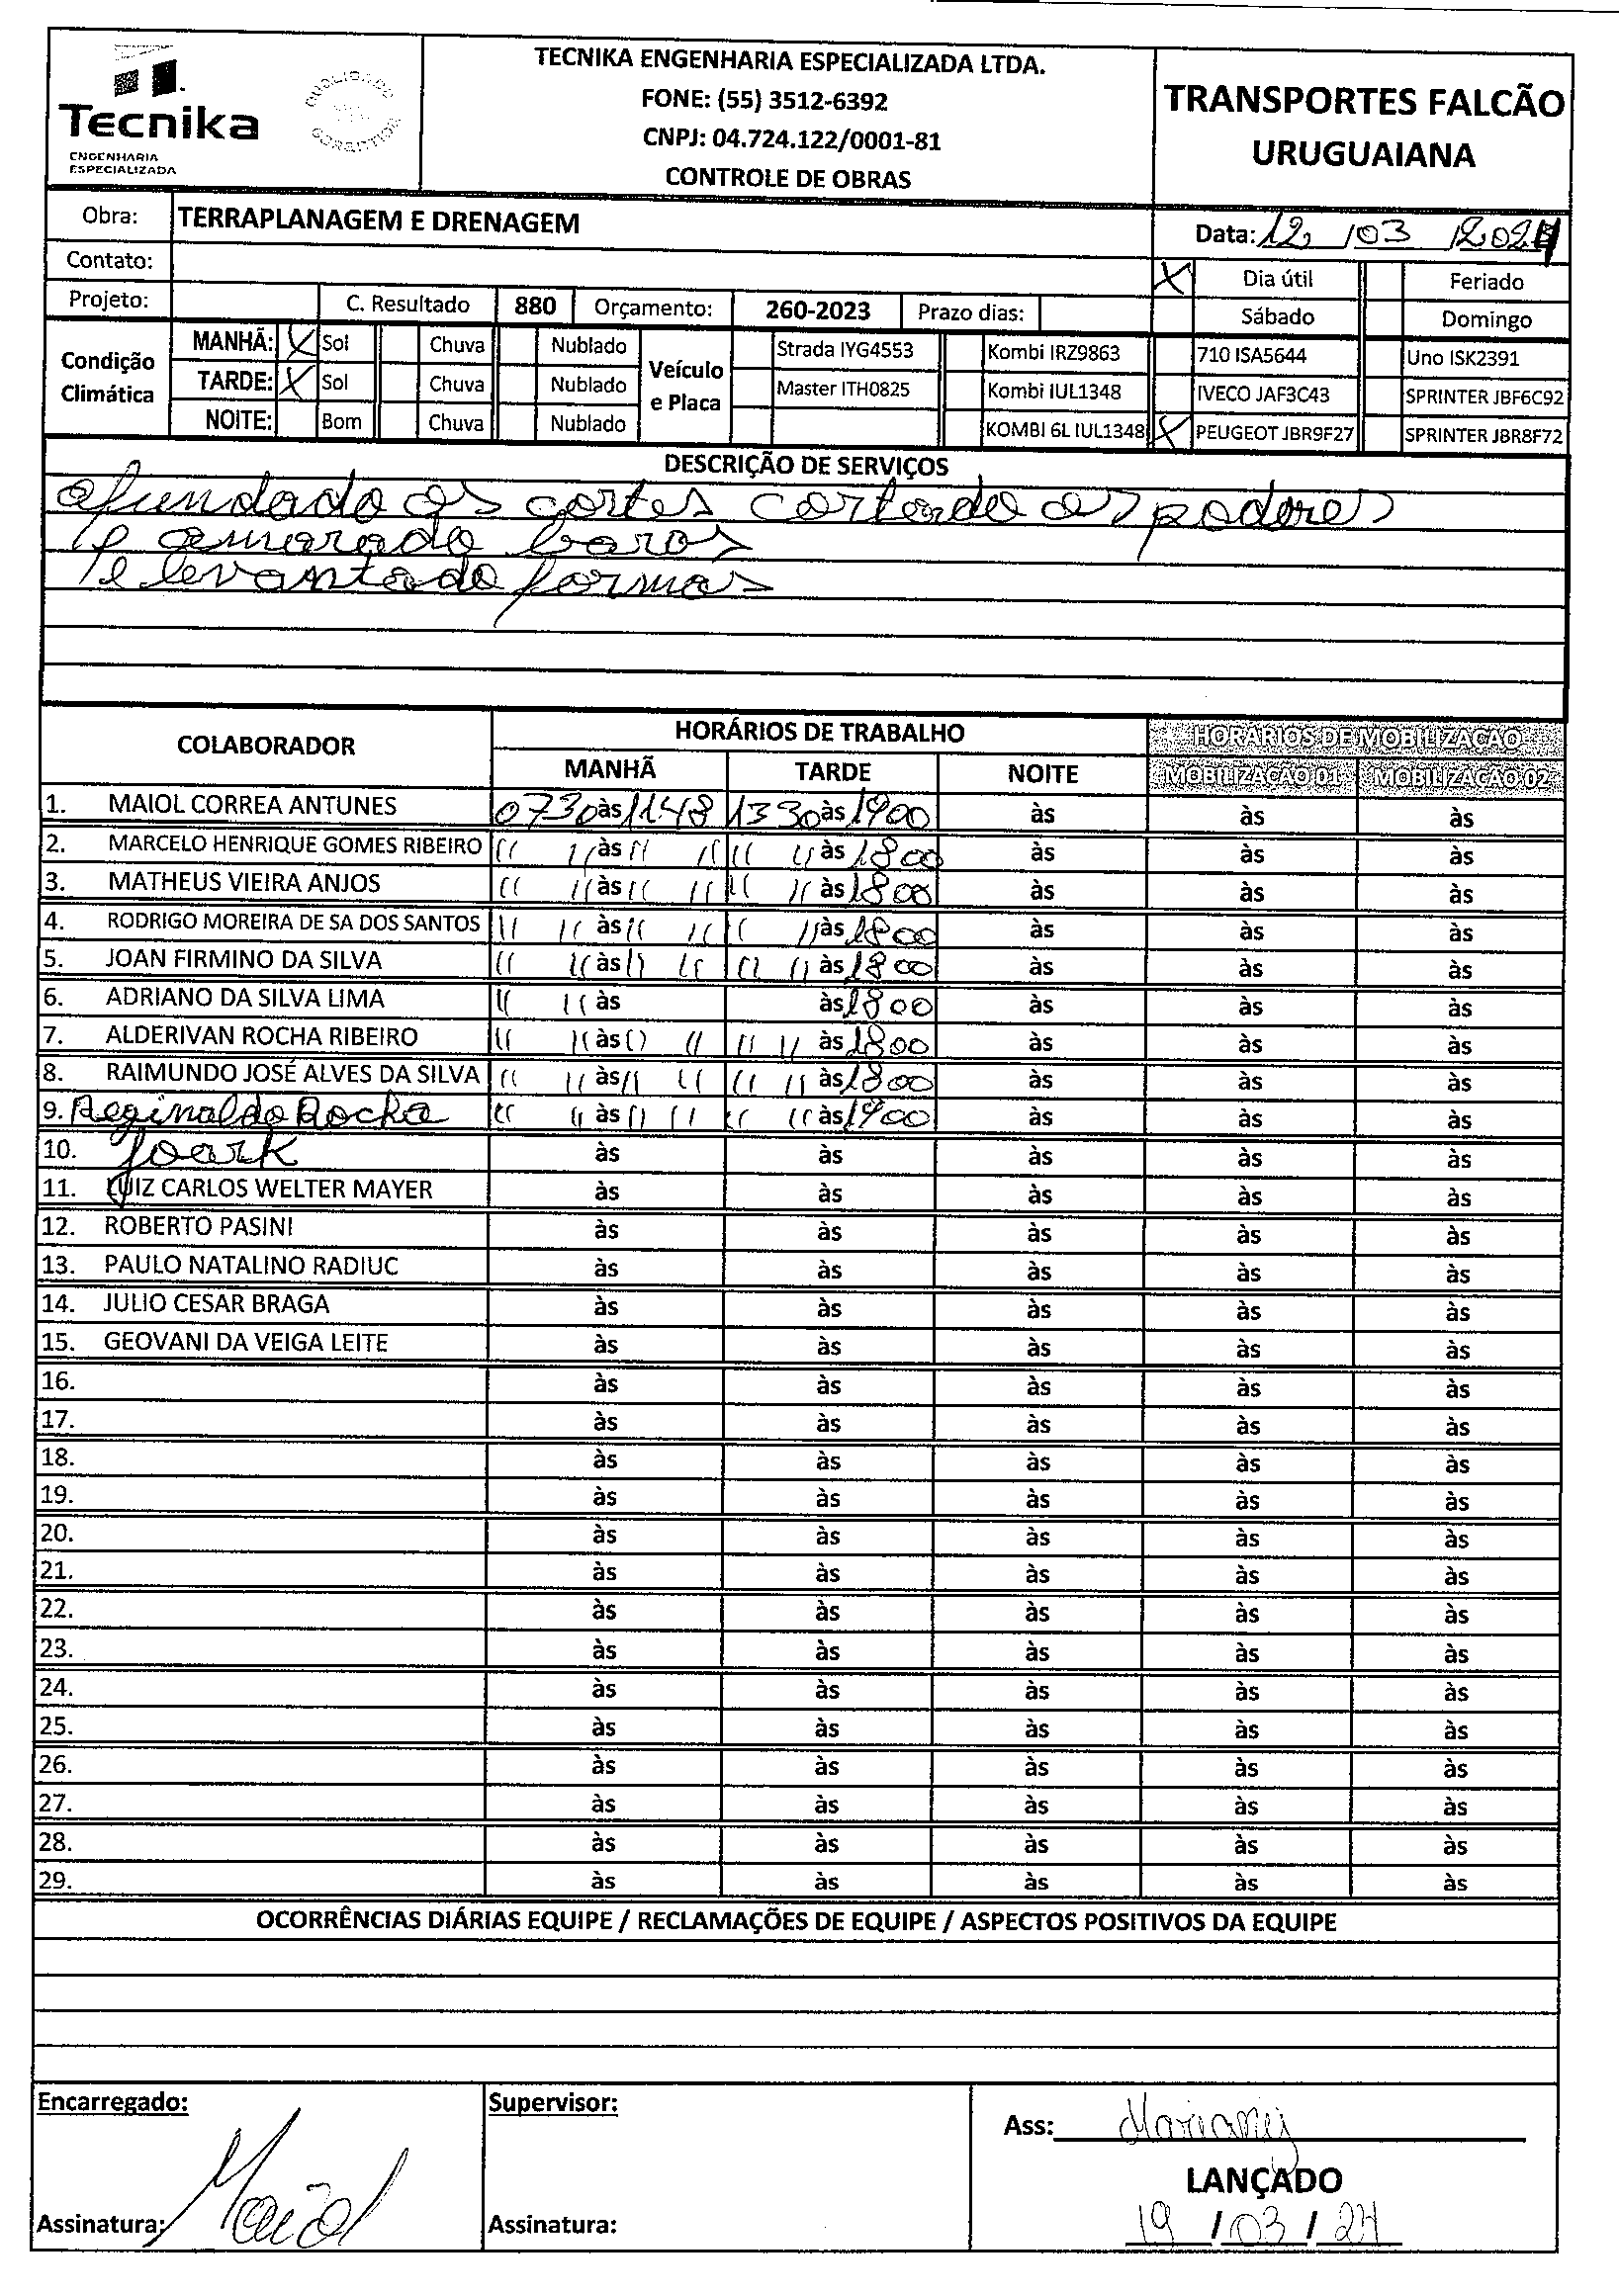 Tecnika
ENGENHARIA
ESPECIALIZADA
TECNIKA ENGENHARIA ESPECIALIZADA LTDA.
FONE: (55) 3512-6392
CNPJ: 04.724.122/0001-81
CONTROLE DE OBRAS
TRANSPORTES FALCÃO
URUGUAIANA
Obra: TERRAPLANAGEM E DRENAGEM Data: 12 / 03 / 2024
Contato: X Dia útil Feriado
Projeto: C. Resultado 880 Orçamento: 260-2023 Prazo dias: Sábado Domingo
Condição Climática MANHÃ: X Sol Chuva Nublado Veículo e Placa Strada IYG4553 Kombi IRZ9863 710 ISA5644 Uno ISK2391
TARDE: X Sol Chuva Nublado Master ITH0825 Kombi IUL1348 IVECO JAF3C43 SPRINTER JBF6C92
NOITE: Bom Chuva Nublado KOMBI 6L IUL1348 X PEUGEOT JBR9F27 SPRINTER JBR8F72
DESCRIÇÃO DE SERVIÇOS
afundado os cortes cortado as podere
e amarado baros
e levantado formas
COLABORADOR HORÁRIOS DE TRABALHO HORÁRIOS DE MOBILIZAÇÃO
MANHÃ TARDE NOITE MOBILIZAÇÃO 01 MOBILIZAÇÃO 02
1. MAIOL CORREA ANTUNES 0730 às 1148 1330 às 1900 às às às
2. MARCELO HENRIQUE GOMES RIBEIRO " " às " " " " às 1800 às às às
3. MATHEUS VIEIRA ANJOS " " às " " " " às 1800 às às às
4. RODRIGO MOREIRA DE SA DOS SANTOS " " às " " " " às 1800 às às às
5. JOAN FIRMINO DA SILVA " " às " " " " às 1800 às às às
6. ADRIANO DA SILVA LIMA " " às às 1800 às às às
7. ALDERIVAN ROCHA RIBEIRO " " às " " " " às 1800 às às às
8. RAIMUNDO JOSÉ ALVES DA SILVA " " às " " " " às 1800 às às às
9. Reginaldo Rocha " " às " " " " às 1900 às às às
10. Joark às às às às às
11. LUIZ CARLOS WELTER MAYER às às às às às
12. ROBERTO PASINI às às às às às
13. PAULO NATALINO RADIUC às às às às às
14. JULIO CESAR BRAGA às às às às às
15. GEOVANI DA VEIGA LEITE às às às às às
16. às às às às às
17. às às às às às
18. às às às às às
19. às às às às às
20. às às às às às
21. às às às às às
22. às às às às às
23. às às às às às
24. às às às às às
25. às às às às às
26. às às às às às
27. às às às às às
28. às às às às às
29. às às às às às
OCORRÊNCIAS DIÁRIAS EQUIPE / RECLAMAÇÕES DE EQUIPE / ASPECTOS POSITIVOS DA EQUIPE
Encarregado: Supervisor: Ass: Mariany
LANÇADO
Assinatura: Maiol Assinatura: 19 / 03 / 24